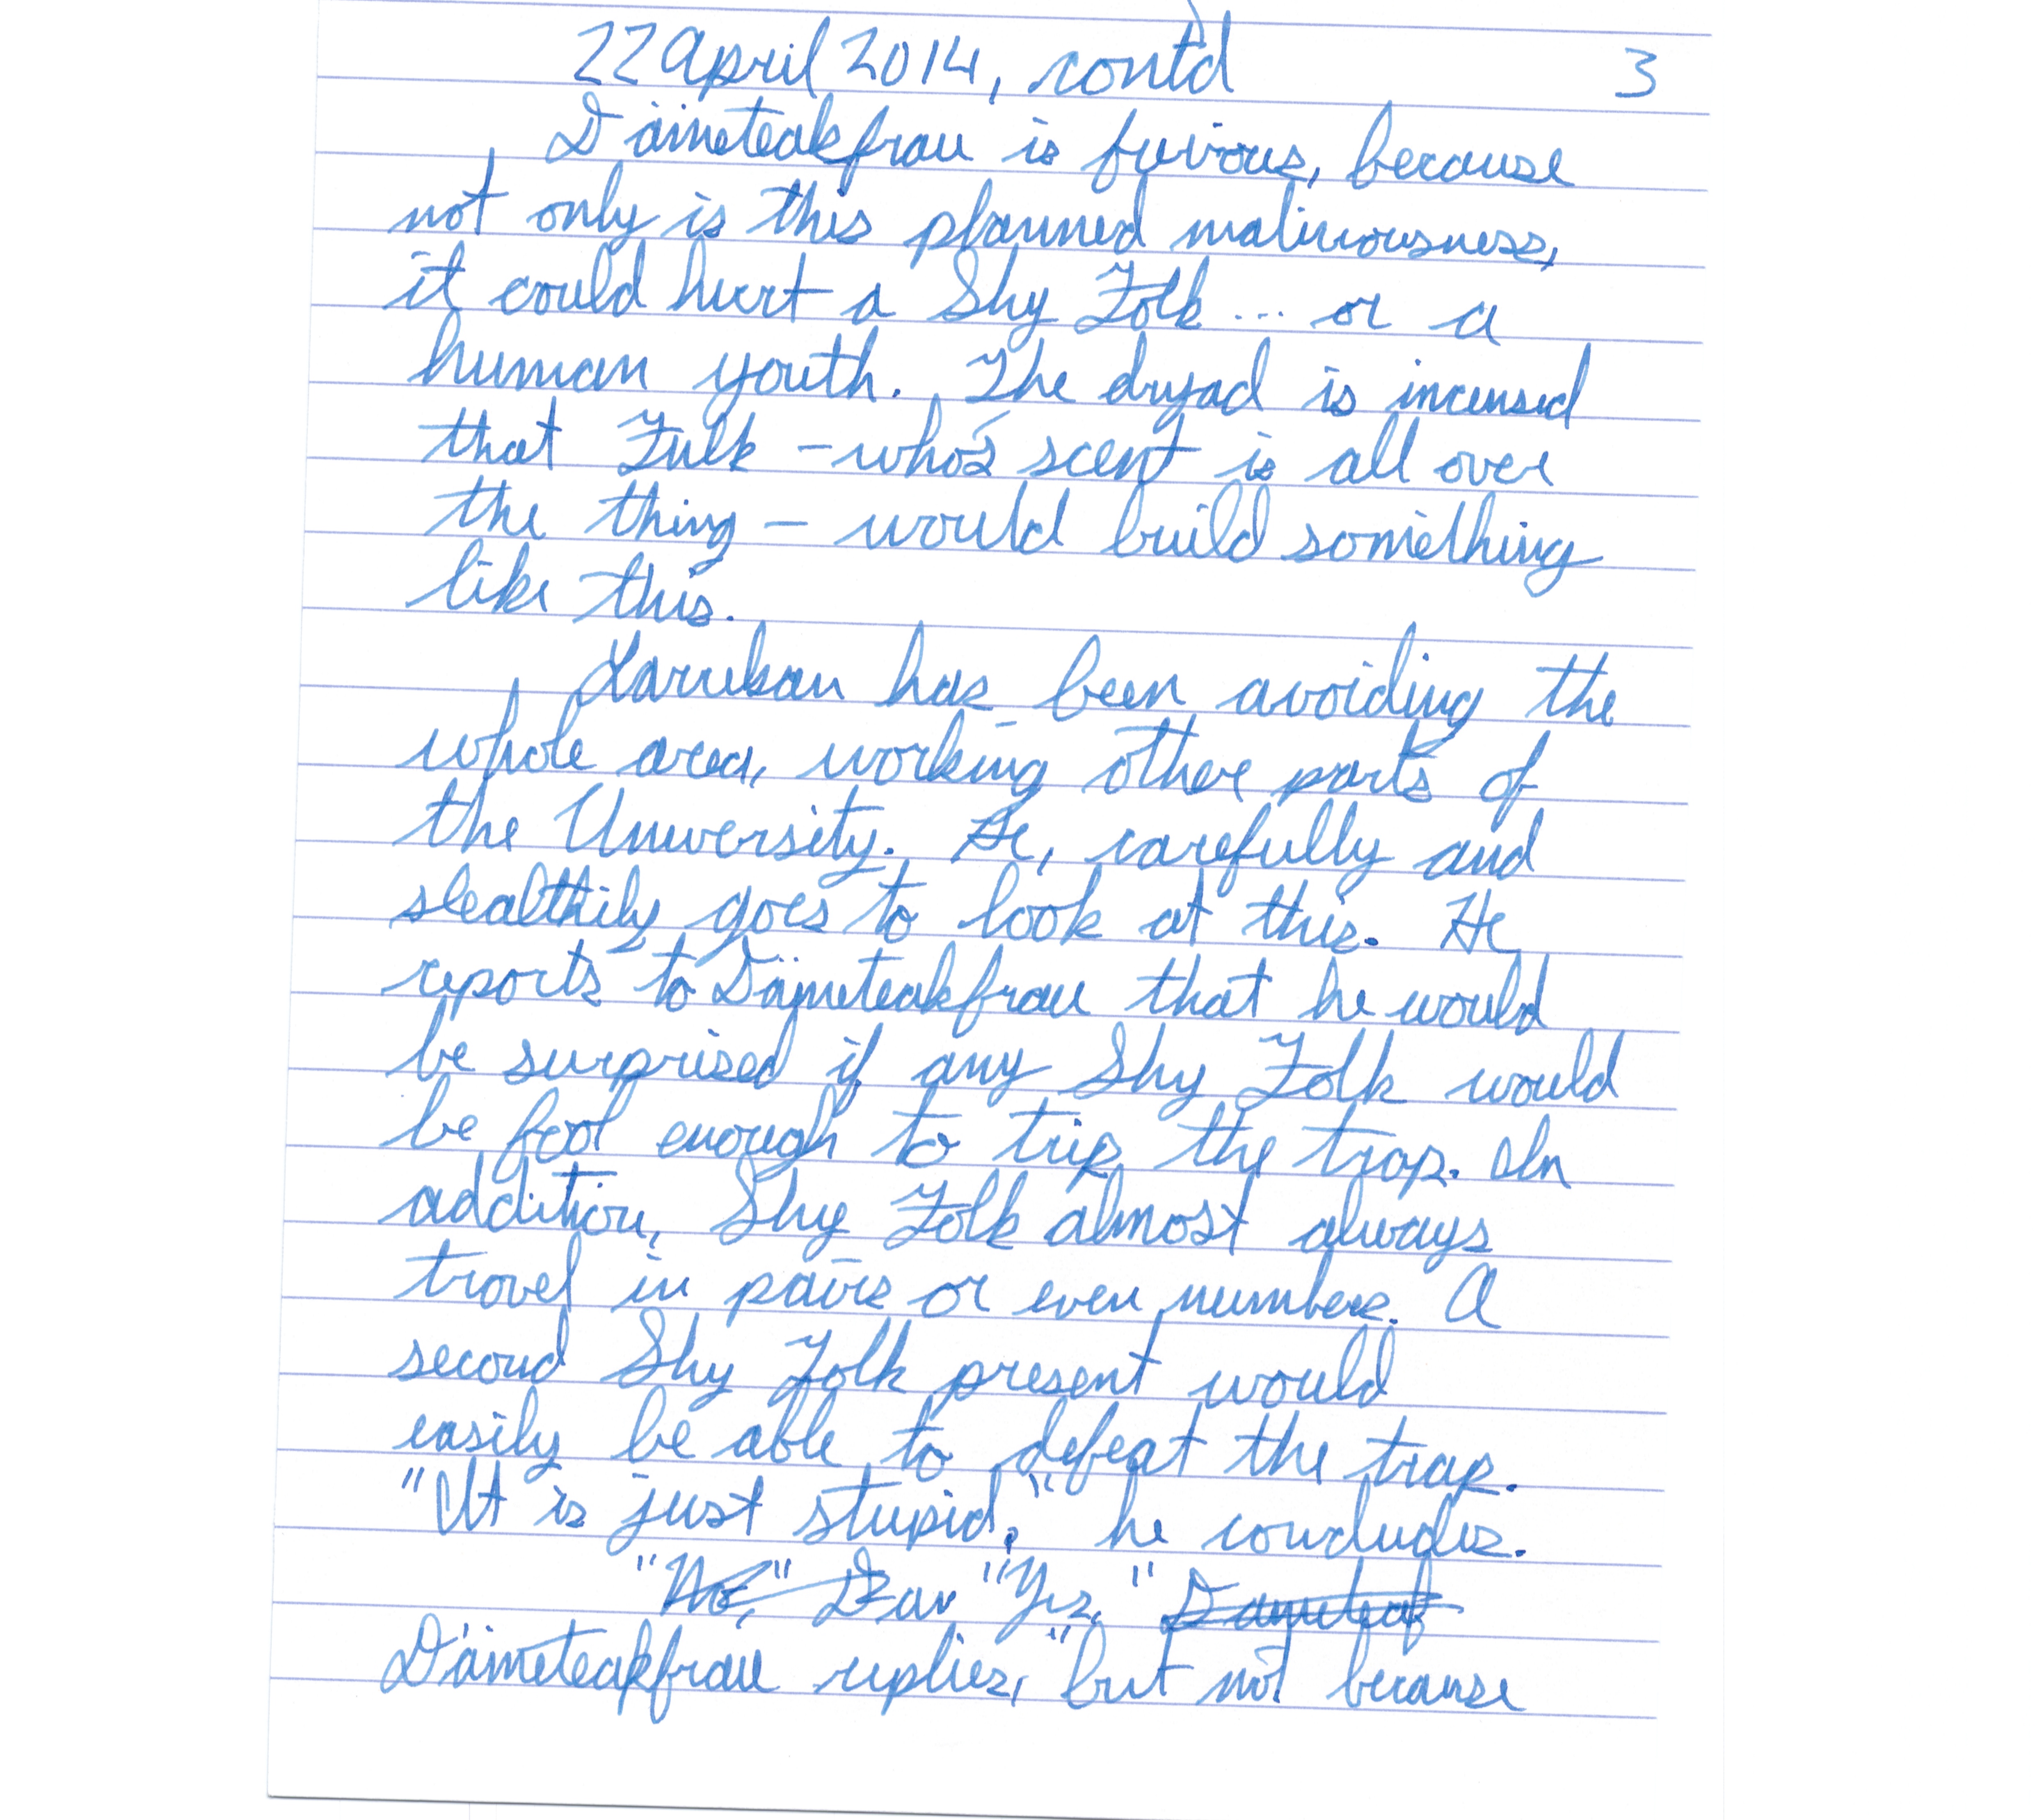 22 April 2014, cont'd 3
Dämeteakfrau is furious, because
not only is this planned maliciousness,
it could hurt a Shy Folk ... or a
human youth. The dryad is incensed
that Fulk – who's scent is all over
the thing – would build something
like this.
Larrekan has been avoiding the
whole area, working other parts of
the University. He, carefully and
stealthily goes to look at this. He
reports to Dämeteakfrau that he would
be surprised if any Shy Folk would
be fool enough to trip the trap. In
addition, Shy Folk almost always
travel in pairs or even numbers. A
second Shy Folk present would
easily be able to defeat the trap.
"It is just stupid," he concludes.
"No," Däm "Yes," Dameteaf
Dämeteakfrau replies, "but not because